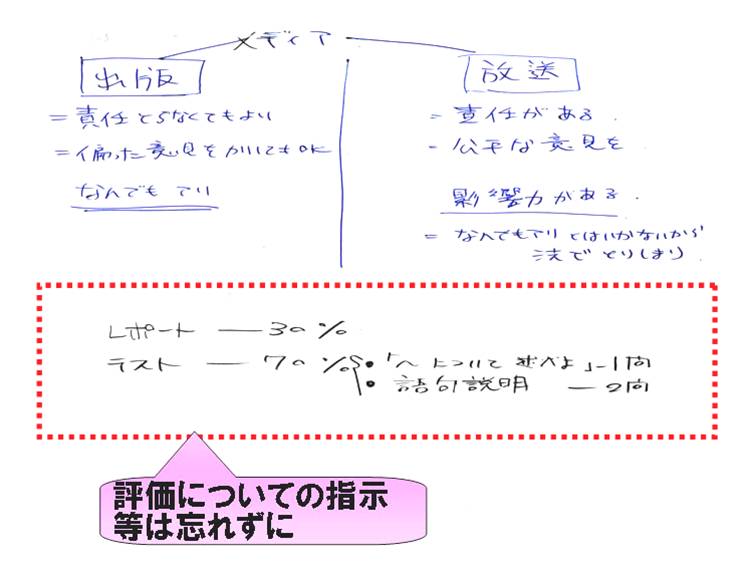 メディア
出版
=責任とらなくてもよい
=偏った意見をかいてもOK
なんでもアリ
放送
=責任がある.
-公平な意見を
影響力がある.
=なんでもアリとはいかないから
法でとりしまり.
レポート — 30%
テスト — 70% •「〜について述べよ」-1問
• 語句説明 — 2問
評価についての指示
等は忘れずに